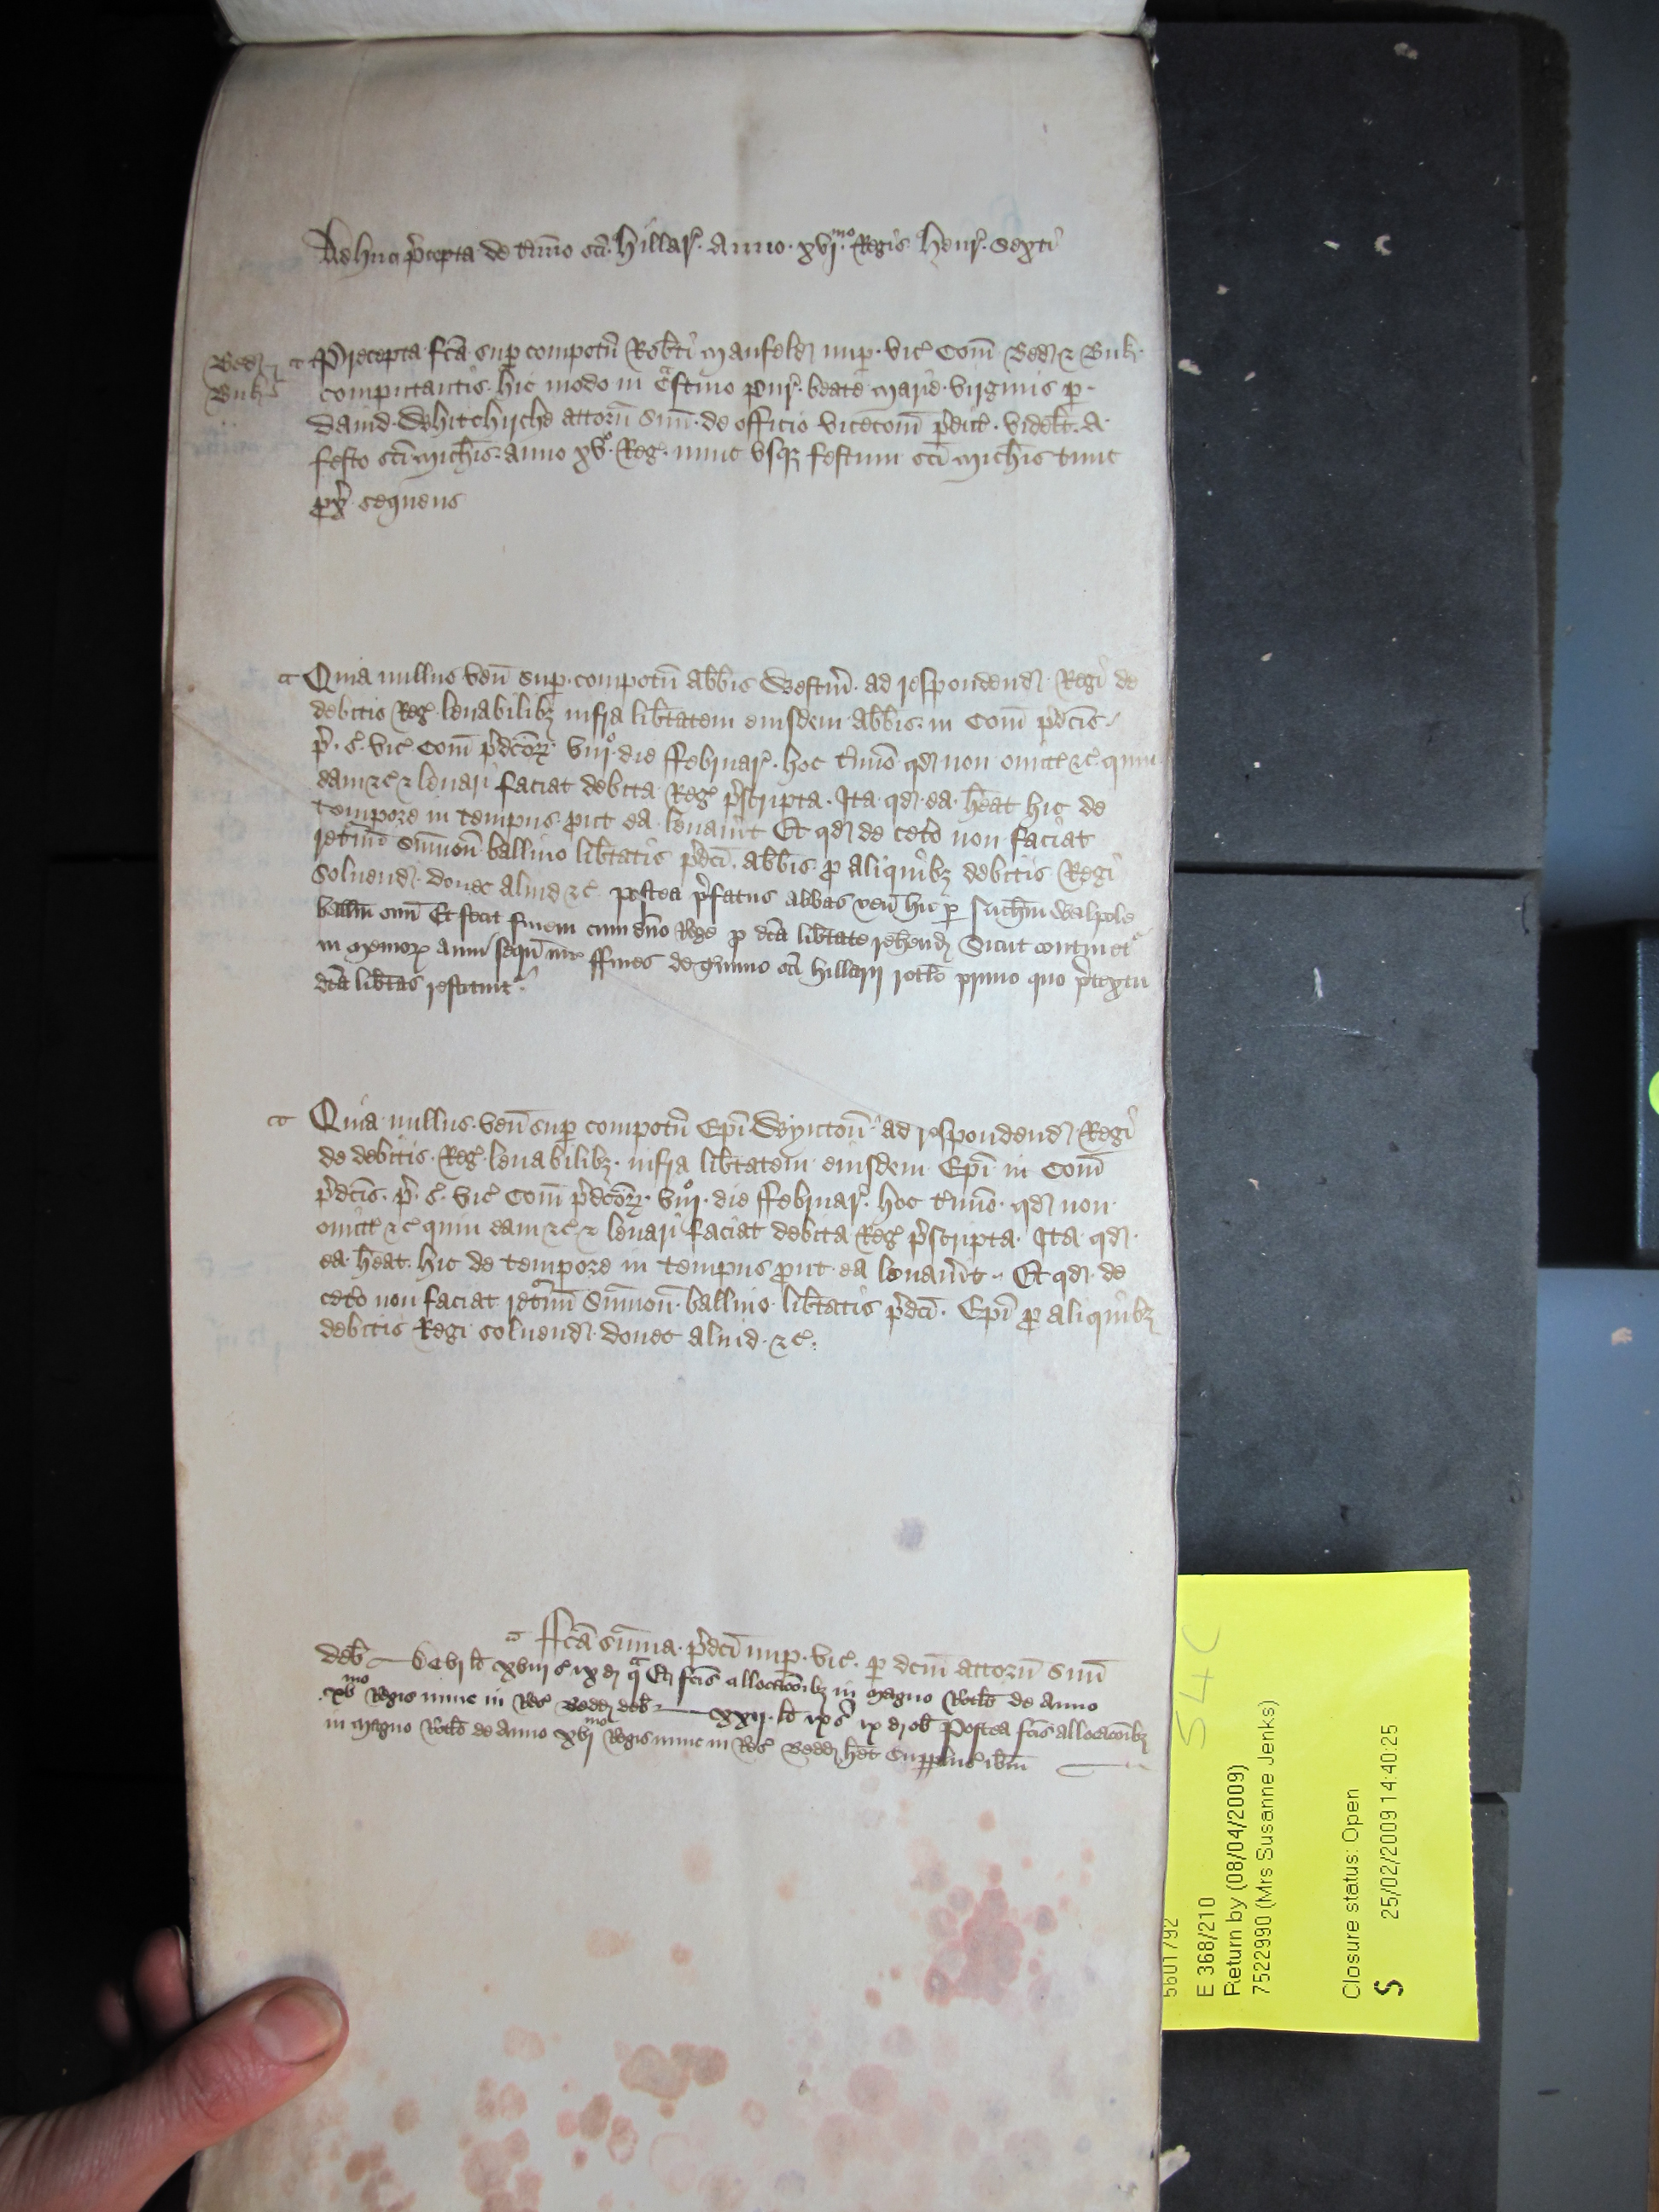 Adhuc p̄cepta de t̄mio sc̄i Hillar̄ Anno xvjmo Regis Henr̄ Sexti
Bed̄ Precepta fc̄a sup compot̄u Rob̄ti Manfeld nup vic̄ Com̄ Bed̄ ⁊ Buk̄
Buk̄ computantis hic modo in c̄astino pur̄ beate Marie virginis p
David Whitchirche attorn̄ suu᷒ de officio vicecom̄ p̄dict̄ videlt̄ A
festo sc̄i Mich̄is anno xvo Reḡ nunc usq᷒ festum sc̄i Mich̄is tunc
px̄ sequens
Quia nullus ven̄ sup compot̄u Abb̄is Westm̄ ad respondend Regi de
debitis Reḡ levabilib᷒ infra lib̄tatem eiusdem Abb̄is in Com̄ p̄dc̄is
p̄ ē vic̄ Com̄ p̄dc̄oꝝ viijo die ffebruar̄ hoc t̄mio qd non omitt̄ ⁊c̄ quin
eam ⁊c̄ ⁊ levari faciat debita Reḡ p̄scripta Ita qd ea h̄eat hic de
tempore in tempus put ea levav̄it Et qd de cet̄o non faciat
retorn̄ Sum̄on̄ ballivo lib̄tatis p̄dc̄i Abb̄is p aliquib᷒ debitis Regi
solvend donec aliud ⁊c̄ postea p̄fatus abbas ven̄ hic p Walpole
Et fecit finem cum dn̄o Rege p dc̄a lib̄tate reh̄end Sicut continet᷒
in memor̄ anni seqū int̄ ffines de t̄mino sc̄i Hillarij rotlo primo quo p̄textu
dc̄a lib̄tas restituit᷒
Quia nullus ven̄ sup compot̄u Ep̄i Wynton̄ ad respondend Regi
de debitis Reḡ levabilib᷒ infra lib̄tatem eiusdem Ep̄i in Com̄
p̄dc̄is p̄ ē vic̄ Com̄ p̄dc̄oꝝ viijo die ffebruar̄ hoc t̄mio qd non
omitt̄ ⁊c̄ quin eam ⁊c̄ ⁊ levari faciat debita Reḡ p̄scripta Ita qd
ea h̄eat hic de tempore in tempus put ea levav̄it Et qd de
cet̄o non faciat retorn̄ Sum̄on̄ ballivo lib̄tatis p̄dc̄i Ep̄i p aliquib᷒
debitis Regi solvend donec aliud ⁊c̄
ffc̄a sum̄a p̄dc̄i nup vic̄ p dc̄m attorn̄ suu᷒
deb̄ xviij s̄ ix d̄ qa Et fc̄is allocac̄oib᷒ in magno Rotlo de Anno
xvmo Regis nunc in Res̄ Bedd̄ deb̄ xxij lī ix s̄ ix d̄ ob̄ Postea fc̄is allocac̄oib᷒
in magno Rotlo de Anno xvjmo Regis nunc in Res̄ Bedd̄ h̄et ib̄m
54C
5601792
E 368/210
Return by (08/04/2009)
7522990 (Mrs Susanne Jenks)
Closure status: Open
S 25/02/2009 14:40:25